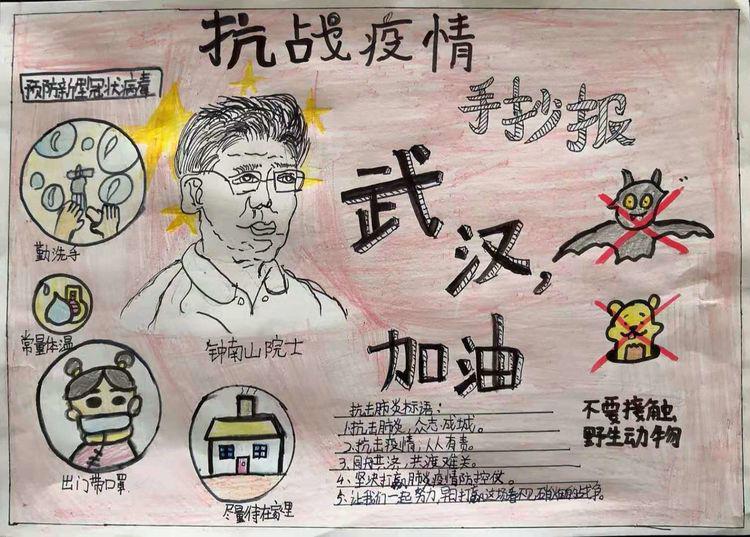 抗战疫情
手抄报
预防新型冠状病毒
武汉,
加油
勤洗手
常量体温
钟南山院士
出门带口罩
尽量待在家里
抗击肺炎标语:
1.抗击肺炎,众志成城。
2.抗击疫情,人人有责。
3.同舟共济,共渡难关。
4、坚决打赢肺炎疫情防控仗。
5、让我们一起努力,早日打赢这场看不见硝烟的战争。
不要接触
野生动物